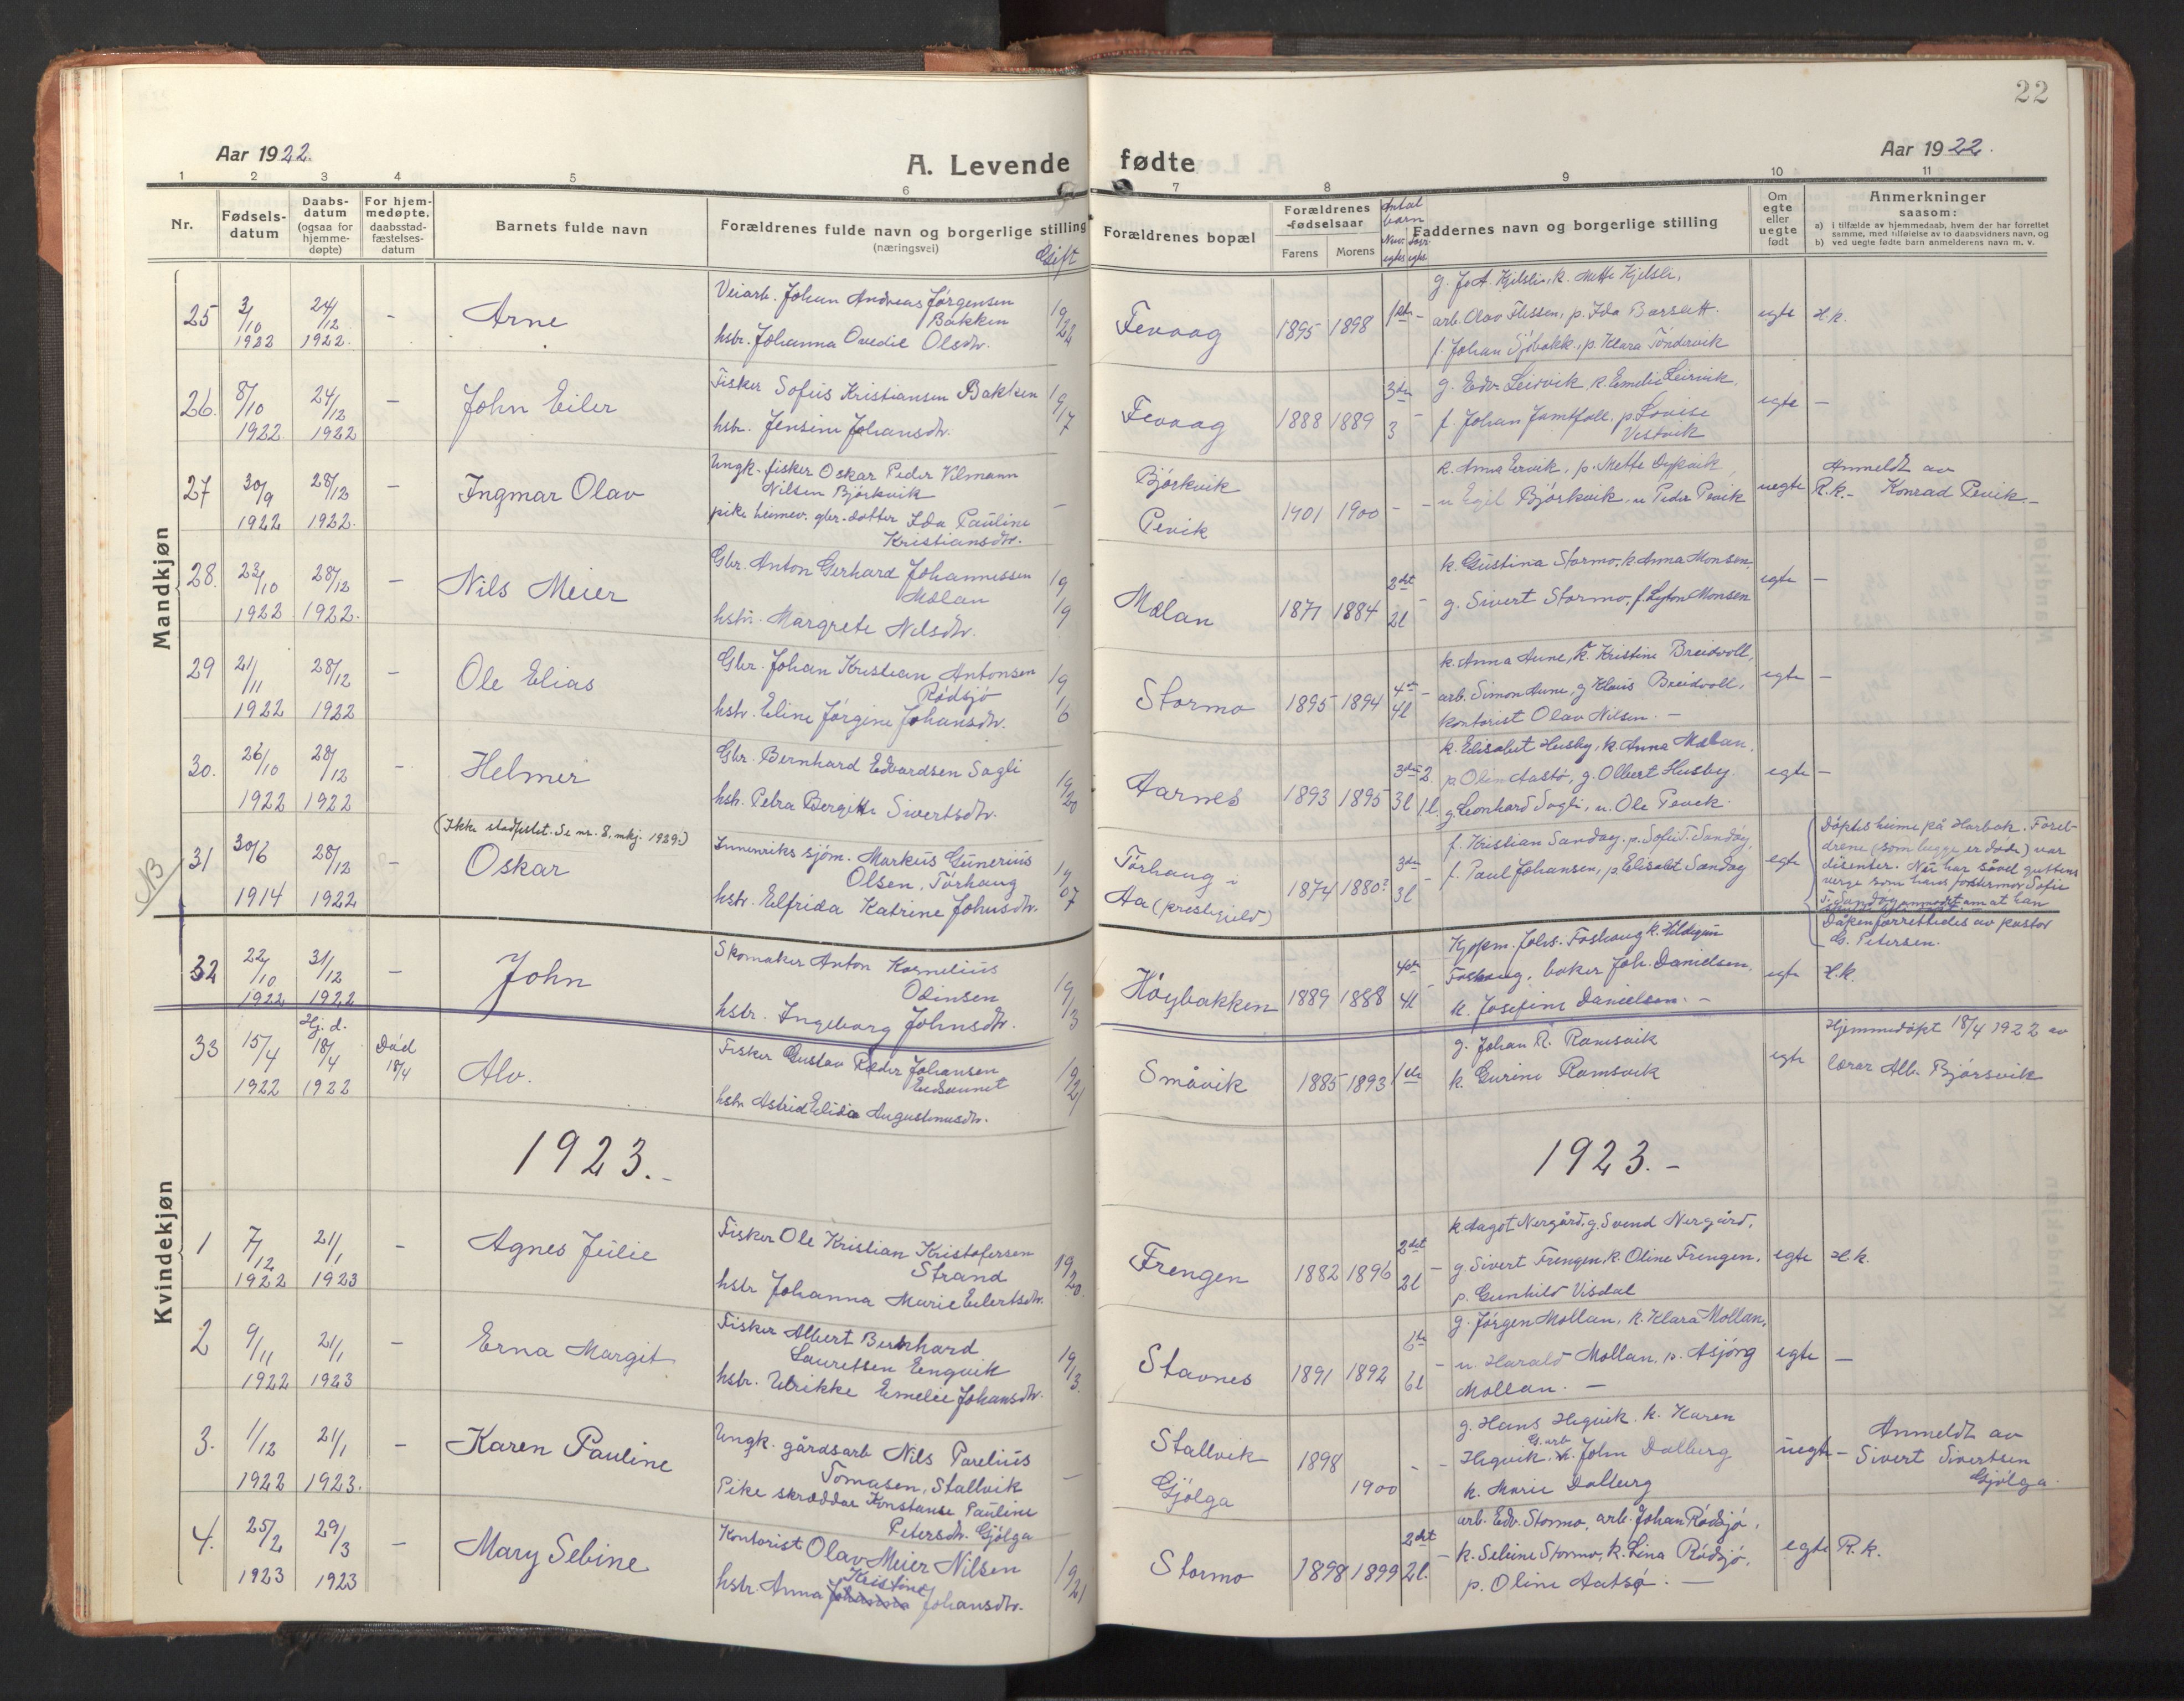 22
Aar 1922.
A. Levende fødte
Aar 1922.
1 2 3 4 5 6 7 8 9 10 11
Nr.
Fødsels-
datum
Daabs-
datum
(ogsaa for
hjemme-
døpte)
For hjem-
medøpte.
daabsstad-
fæstelses-
datum
Barnets fulde navn
Forældrenes fulde navn og borgerlige stilling
(næringsvei)
Gift
Forældrenes bopæl
Forældrenes
-fødselsaar
Farens Morens
Antal
barn
Faddernes navn og borgerlige stilling
Om
egte
eller
uegte
født
Anmerkninger
saasom:
a) i tilfælde av hjemmedaab, hvem der har forrettet
samme, med tilføielse av to daabsvidners navn, og
b) ved uegte fødte barn anmelderens navn m. v.
Mandkjøn
25 3/10 1922 24/12 1922. - Arne
Veiarb. Johan Andreas Jørgensen
Bakken
hstr. Johanna Ovedie Olsdtr.
Fevaag 1895 1898
arb. Olav Flessen, p. Ida Barsett.
f. Johan Sjøbakk, p. Klara Tøndervik
egte H.k.
26. 8/10 1922 24/12 1922 - John Eiler
Fisker Sofus Kristiansen Bakken 19/7
hstr. Jensine Johansdtr.
Fevaag 1888 1889 3
g. Edv. Leirvik k. Emelie Leirvik.
f. Johan Jamtfall. p. Lovise
Vestvik
egte -
27 30/9 1922 28/12 1922. - Ingmar Olav
Ungk. fisker Oskar Peder Vilmann
Nilsen Bjørkvik
pike heimev. gbr. datter Ida Pauline
Kristiansdtr.
Bjørkvik
Pevik 1901 1900 - -
k. Anna Ervik, p. Mette Dypvik
u Egil Bjørkvik, u Peder Pevik
uegte
Anmeldt av
R.k. - Konrad Pevik -
28. 23/10 1922 28/12 1922. - Nils Meier
Gbr. Anton Gerhard Johannessen
Mælan 19/19
hstr. Margrete Nilsdtr.
Mælan 1871 1884 2det 2l
k. Gustina Stormo, k. Anna Monsen,
g. Sivert Stormo, f. Lyton Monsen
egte -
29 21/11 1922 28/12 1922 - Ole Elias
Gbr. Johan Kristian Antonsen
Rødsjø 19/16
hstr. Eline Jørgine Johansdtr.
Stormo 1895 1894 4de 4l
k. Anna Aune, k. Kristine Breidvoll,
arb. Simon Aune, g Klaus Breidvoll,
kontorist Olav Nilsen. -
egte -
30. 26/10 1922 28/12 1922 - Helmer
Gbr. Bernhard Edvardsen Sagli 19/20
hstr. Petra Bergitte Sivertsdtr.
Aarnes 1893 1895 3die 2 3l 1l.
k. Elisabet Husby, k. Anna Mælan,
p. Olin Aastø, g. Olbert Husby.
g. Leonhard Sagli, u. Ole Pevik.
egte -
NB
(Ikke stadfestet. Se nr. 8, mkj. 1929.)
31 30/6 1914 28/12 1922 - Oskar
Innenriks sjøm. Markus Gunerius
Olsen, Tørhaug 19/07
hstr. Elfrida Katrine Johnsdtr.
Tørhaug i
Aa (prestegjeld) 1874 1880? 3die 3l
f. Kristian Sandøy, p. Sofie T. Sandøy,
f. Paul Johansen, p. Elisabet Sandøy
egte
Døptes heime på Harbak. Forel-
drene (som begge er døde) var
disenter. Nu har såvel guttens
verge som hans fostermor Sofie
T. Sandøy anmodet om at han
Dåpen forrettedes av pastor
G. Petersen.
32 22/10 1922 31/12 1922 - John
Skomaker Anton Kornelius
Odinsen 19/13
hstr. Ingeborg Johnsdtr.
Høybakken 1889 1888 4de 4l
Kjøpm. Johs. Foshaug k. Hildegun
Foshaug, baker Joh. Danielsen,
k. Josefine Danielsen. -
egte H.k.
33 15/4 1922 Hj. d. 18/4 1922 Død 18/4 Alv.
Fisker Gustav Peder Johansen
Eidsaunet 19/21
hstr Astrid Elida Augustinusdtr.
Småvik 1885 1893 1ste
g. Johan R. Ramsvik
k. Gurine Ramsvik
egte
Hjemmedøpt 18/4 1922 av
lærer Alb. Bjørsvik
1923. -
1923. -
Kvindekjøn
1 7/12 1922 21/1 1923 - Agnes Julie
Fisker Ole Kristian Kristofersen
Strand 19/20.
hstr Johanna Marie Eilertsdtr.
Frengen 1882 1896 2det 2l -
k. Aagot Nergård, g. Svend Nergård,
g. Sivert Frengen, k. Oline Frengen,
p. Gunhild Visdal
egte H.k.
2 9/11 1922 21/1 1923 - Erna Margit
Fisker Albert Bernhard
Lauritsen Engvik 19/13.
hstr. Ulrikke Emelie Johansdtr.
Stavnes 1891 1892 6te 6l -
g. Jørgen Mollan, k. Klara Mollan,
u. Harald Mollan, p. Asjørg
Mollan. -
egte -
3. 1/12 1922 21/1 1923. - Karen Pauline
Ungk. gårdsarb Nils Parelius
Tomasen, Stallvik -
Pike skrædder Konstanse Pauline
Petersdtr. Gjølga
Stallvik 1898
Gjølga 1900 - -
g. Hans Hegvik. k. Karen
Hegvik. G.arb. John Dalberg
k. Marie Dalberg
uegte -
Anmeldt av
Sivert Sivertsen
Gjølga.
4. 25/2 1923 29/3 1923 - Mary Sebine
Kontorist Olav Meier Nilsen 19/21
Kristine
hstr. Anna Johansdtr.
Stormo 1898 1899 2det 2l. -
arb. Edv. Stormo, arb. Johan Rødsjø,
k. Sebine Stormo, k. Lina Rødsjø,
p. Oline Aatsø. -
egte R.k.